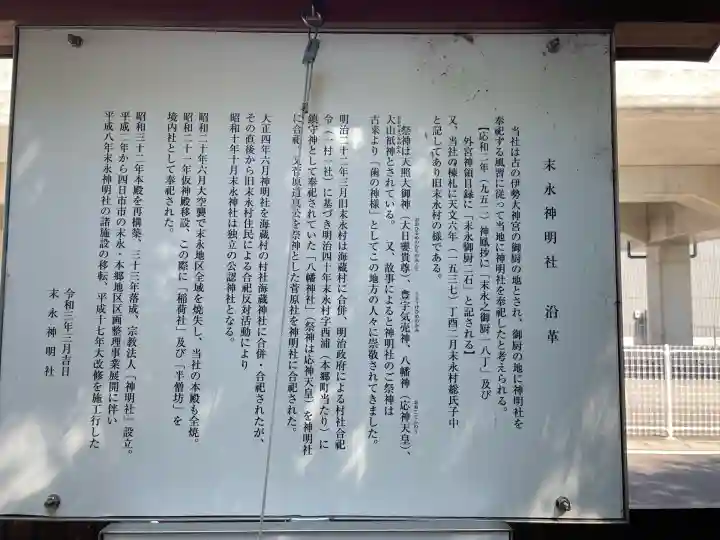 末永神明社 沿革
当社は古の伊勢大神宮の御厨の地とされ、御厨の地に神明社を
奉祀する風習に従って当地に神明社を奉祀したと考えられる。
【応和二年(九五二)神鳳抄に「末永之御厨一八丁」及び
外宮神領目録に「末永御厨二石」と記される】
又、当社の棟札に天文六年(一五三七)丁酉二月末永村総氏子中
と記してあり旧末永村の様である。
祭神は天照大御神(大日孁貴尊)、豊宇気売神、八幡神(応神天皇)、
大山祇神とされている。 又、故事によると神明社のご祭神は
古来より「歯の神様」としてこの地方の人々に崇敬されてきました。
明治二十二年三月旧末永村は海蔵村に合併、明治政府による村社合祀
令(一村一社)に基づき明治四十年末永村字西浦(本郷町当たり)に
鎮守神として奉祀されていた「八幡神社」(祭神は応神天皇)を神明社
に合祀 又菅原道真公を祭神とした菅原社を神明社に合祀された。
大正四年六月神明社を海蔵村の村社海蔵神社に合併・合祀されたが、
その直後から旧末永村住民による合祀反対活動により
昭和十年十月末永神明社は独立の公認神社となる。
昭和二十年六月大空襲で末永地区全域を焼失し、当社の本殿も全焼。
昭和二十一年仮神殿移設、この際に「稲荷社」及び「半僧坊」を
境内社として奉祀された。
昭和三十二年本殿を再構築、三十三年落成、宗教法人「神明社」設立。
平成一年から四日市市の末永・本郷地区区画整理事業展開に伴い
平成八年末永神明社の諸施設の移転、平成十七年大改修を施工行した
令和三年三月吉日
末永神明社